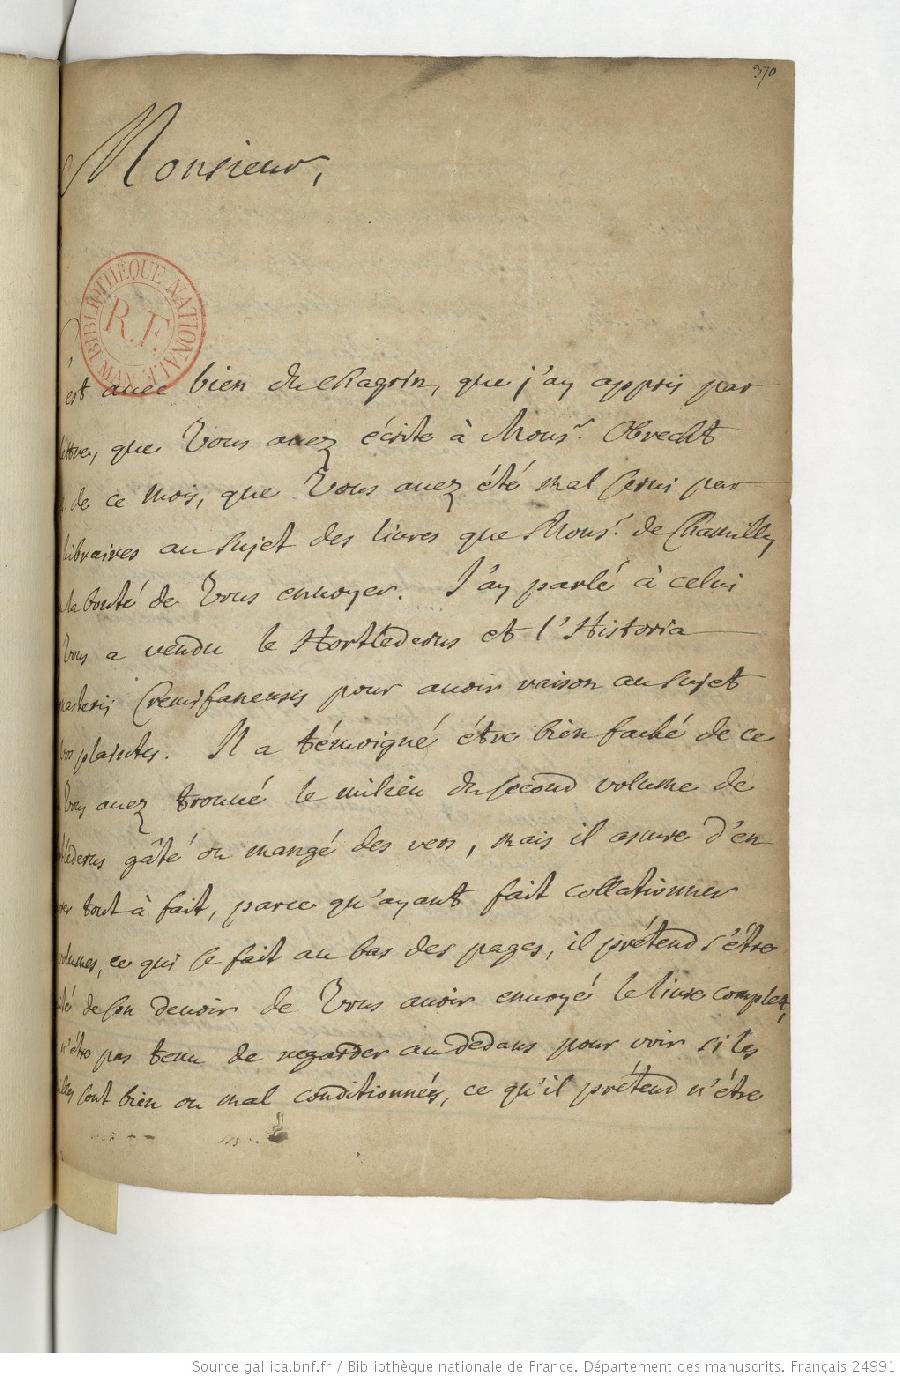 370
Monsieur,
BIBLIOTHÈQUE NATIONALE
R.F.
MAN
est auec bien du chagrin, que j'ay appris par
lettre, que Vous auez écrite à Mons.r Obrecht
de ce mois, que Vous auez été mal serui par
libraires au sujet des liures que Mons.r de Chamilly
la bonté de Vous enuoyer. J'ay parlé à celui
Vous a vendu le Hortlederus et l'Historia
nasterij Cremifanensis pour auoir raison au sujet
vos plaintes. Il a témoigné être bien faché de ce
Vous auez trouué le milieu du second volume de
tlederus gâté ou mangé des vers, mais il asure d'en
tout à fait, parce qu'ayant fait collationner
volumes, ce qui se fait au bas des pages, il prétend s'être
de son deuoir de Vous auoir enuoyé le liure complet,
n'être pas tenu de regarder au dedans pour voir si les
sont bien ou mal conditionnés, ce qu'il prétend n'être
Source gallica.bnf.fr / Bibliothèque nationale de France. Département des manuscrits. Français 24991